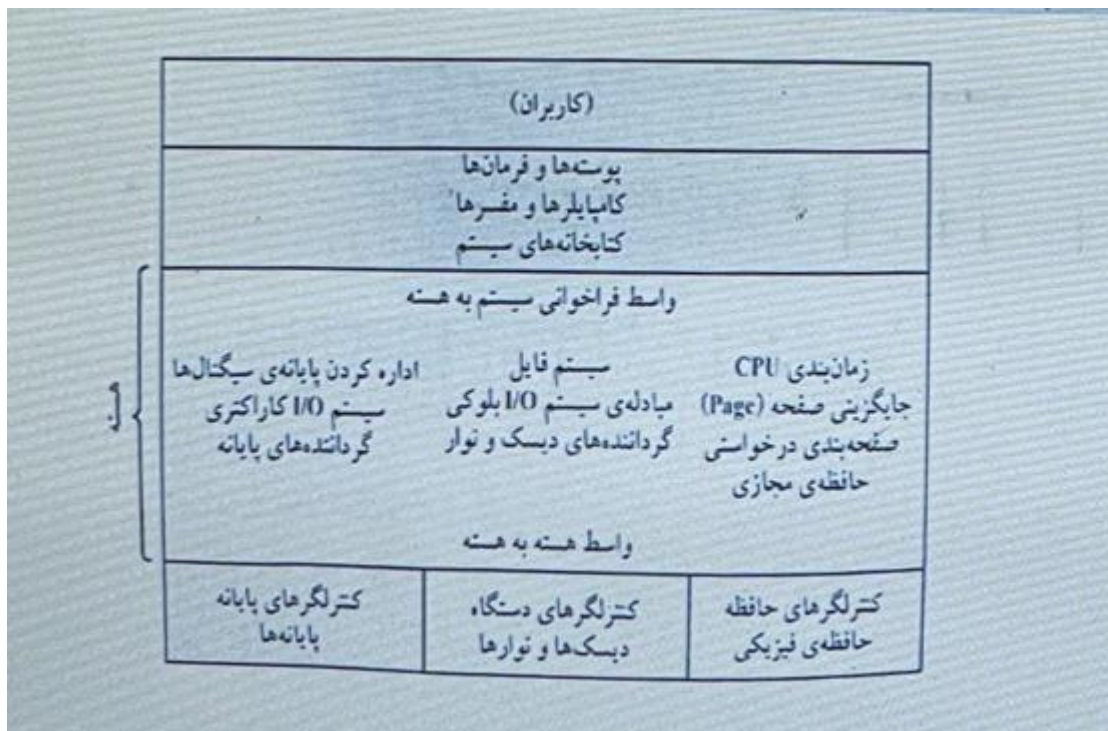 (کاربران)
پوسته‌ها و فرمان‌ها
کامپایلرها و مفسرها
کتابخانه‌های سیستم
واسط فراخوانی سیستم به هسته
زمان‌بندی CPU
جایگزینی صفحه (Page)
صفحه‌بندی درخواستی
حافظه‌ی مجازی
سیستم فایل
مبادله‌ی سیستم I/O بلوکی
گرداننده‌های دیسک و نوار
اداره کردن پایانه‌ی سیگنال‌ها
سیستم I/O کاراکتری
گرداننده‌های پایانه
هسته
واسط هسته به هسته
کنترلگرهای حافظه
حافظه‌ی فیزیکی
کنترلگرهای دستگاه
دیسک‌ها و نوارها
کنترلگرهای پایانه
پایانه‌ها